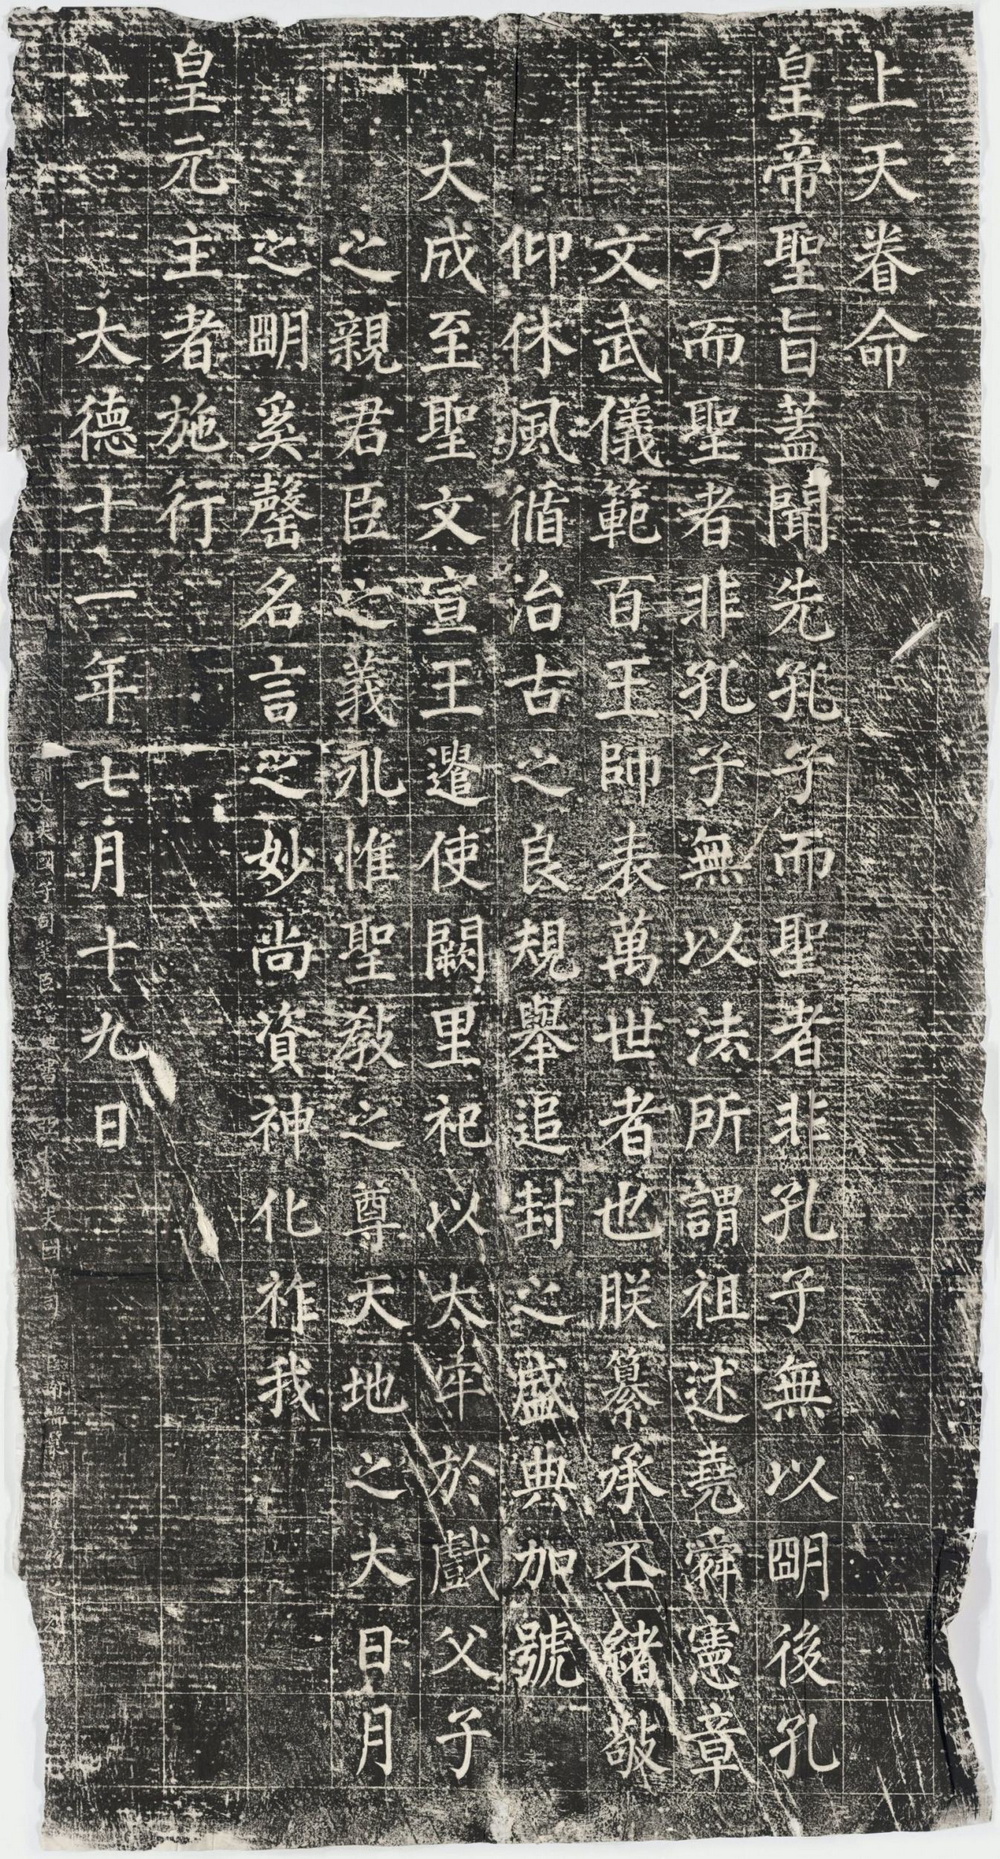 上天眷命
皇帝聖旨蓋聞先孔子而聖者非孔子無以朙後孔
子而聖者非孔子無以法所謂祖述堯舜憲章
文武儀範百王師表萬世者也朕纂承丕緒敬
仰休風循治古之良規舉追封之盛典加號
大成至聖文宣王遣使闕里祀以太牢於戲父子
之親君臣之義永惟聖教之尊天地之大日月
之朙奚罄名言之妙尚資神化祚我
皇元主者施行
大德十一年七月十九日